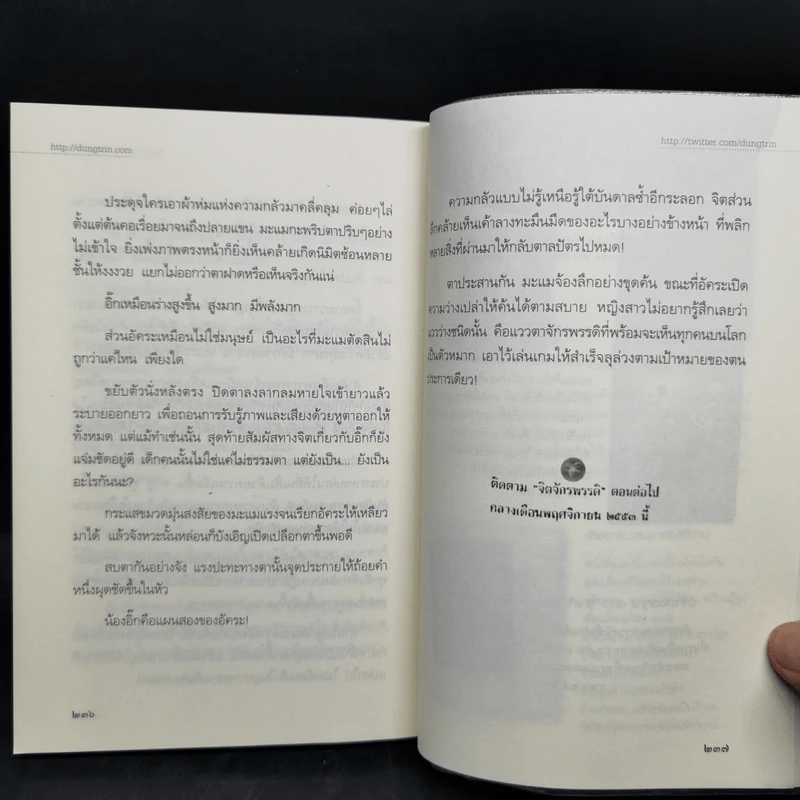 http://dungtrin.com
ประดุจใครเอาผ้าห่มแห่งความกลัวมาคลี่คลุม ค่อยๆไล่
ตั้งแต่ต้นคอเรื่อยมาจนถึงปลายแขน มะแมกะพริบตาปริบๆอย่าง
ไม่เข้าใจ ยิ่งเพ่งภาพตรงหน้าก็ยิ่งเห็นคล้ายเกิดนิมิตซ้อนหลาย
ชั้นให้งงงวย แยกไม่ออกว่าตาฝาดหรือเห็นจริงกันแน่
อิ๊กเหมือนร่างสูงขึ้น สูงมาก มีพลังมาก
ส่วนอัคระเหมือนไม่ใช่มนุษย์ เป็นอะไรที่มะแมตัดสินไม่
ถูกว่าแค่ไหน เพียงใด
ขยับตัวนั่งหลังตรง ปิดตาลงลากลมหายใจเข้ายาวแล้ว
ระบายออกยาว เพื่อถอนการรับรู้ภาพและเสียงด้วยหูตาออกให้
ทั้งหมด แต่แม้ทำเช่นนั้น สุดท้ายสัมผัสทางจิตเกี่ยวกับอิ๊กก็ยัง
แจ่มชัดอยู่ดี เด็กคนนั้นไม่ใช่แค่ไม่ธรรมดา แต่ยังเป็น... ยังเป็น
อะไรกันนะ?
กระแสขมวดมุ่นสงสัยของมะแมแรงจนเรียกอัคระให้เหลียว
มาได้ แล้วจังหวะนั้นหล่อนก็บังเอิญเปิดเปลือกตาขึ้นพอดี
สบตากันอย่างจัง แรงปะทะทางตานั้นจุดประกายให้ถ้อยคำ
หนึ่งผุดชัดขึ้นในหัว
น้องอิ๊กคือแผนสองของอัคระ!
๒๓๖
http://twitter.com/dungtrin
ความกลัวแบบไม่รู้เหนือรู้ใต้บันดาลซ้ำอีกระลอก จิตส่วน
ลึกคล้ายเห็นเค้าลางทะมึนมืดของอะไรบางอย่างข้างหน้า ที่พลิก
หลายสิ่งที่ผ่านมาให้กลับตาลปัตรไปหมด!
ตาประสานกัน มะแมจ้องลึกอย่างขุดค้น ขณะที่อัคระเปิด
ความว่างเปล่าให้ค้นได้ตามสบาย หญิงสาวไม่อยากรู้สึกเลยว่า
แววว่างชนิดนั้น คือแววตาจักรพรรดิที่พร้อมจะเห็นทุกคนบนโลก
เป็นตัวหมาก เอาไว้เล่นเกมให้สำเร็จลุล่วงตามเป้าหมายของตน
ประการเดียว!
ติดตาม “จิตจักรพรรดิ” ตอนต่อไป
กลางเดือนพฤศจิกายน ๒๕๕๓ นี้
๒๓๗